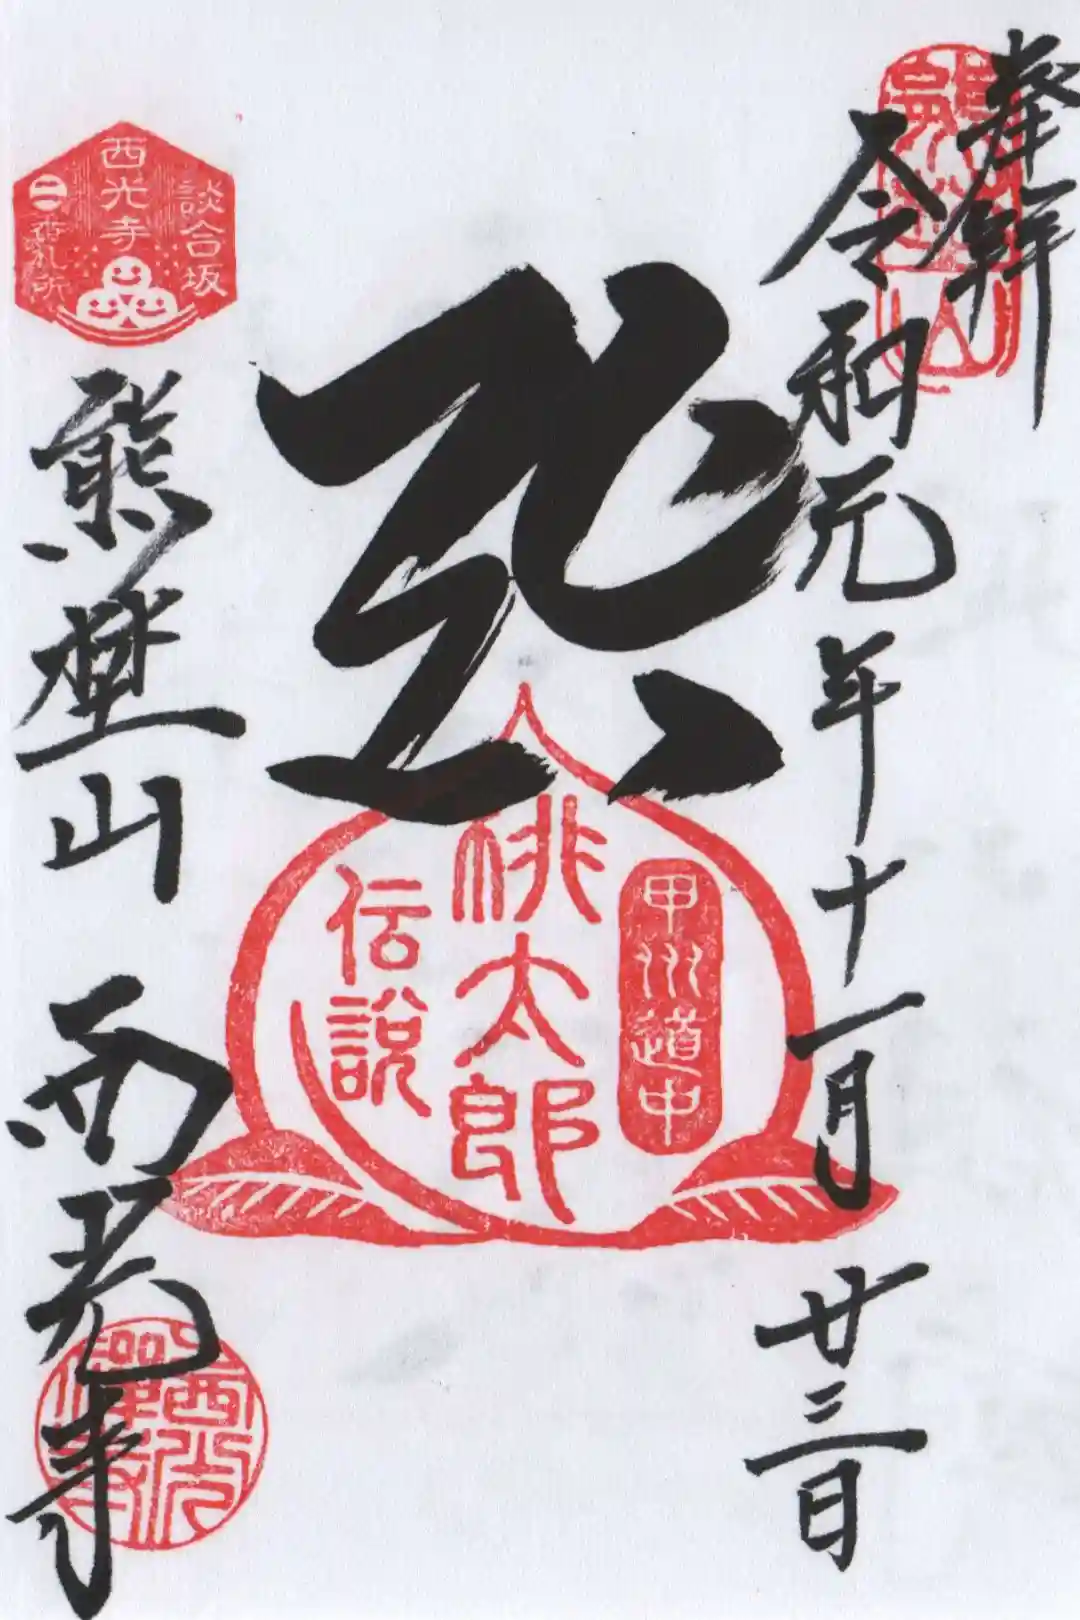 奉拝
令和元年十一月廿三日
甲州道中
桃太郎
伝説
談合坂
西光寺
二番札所
熊埜山 西光寺